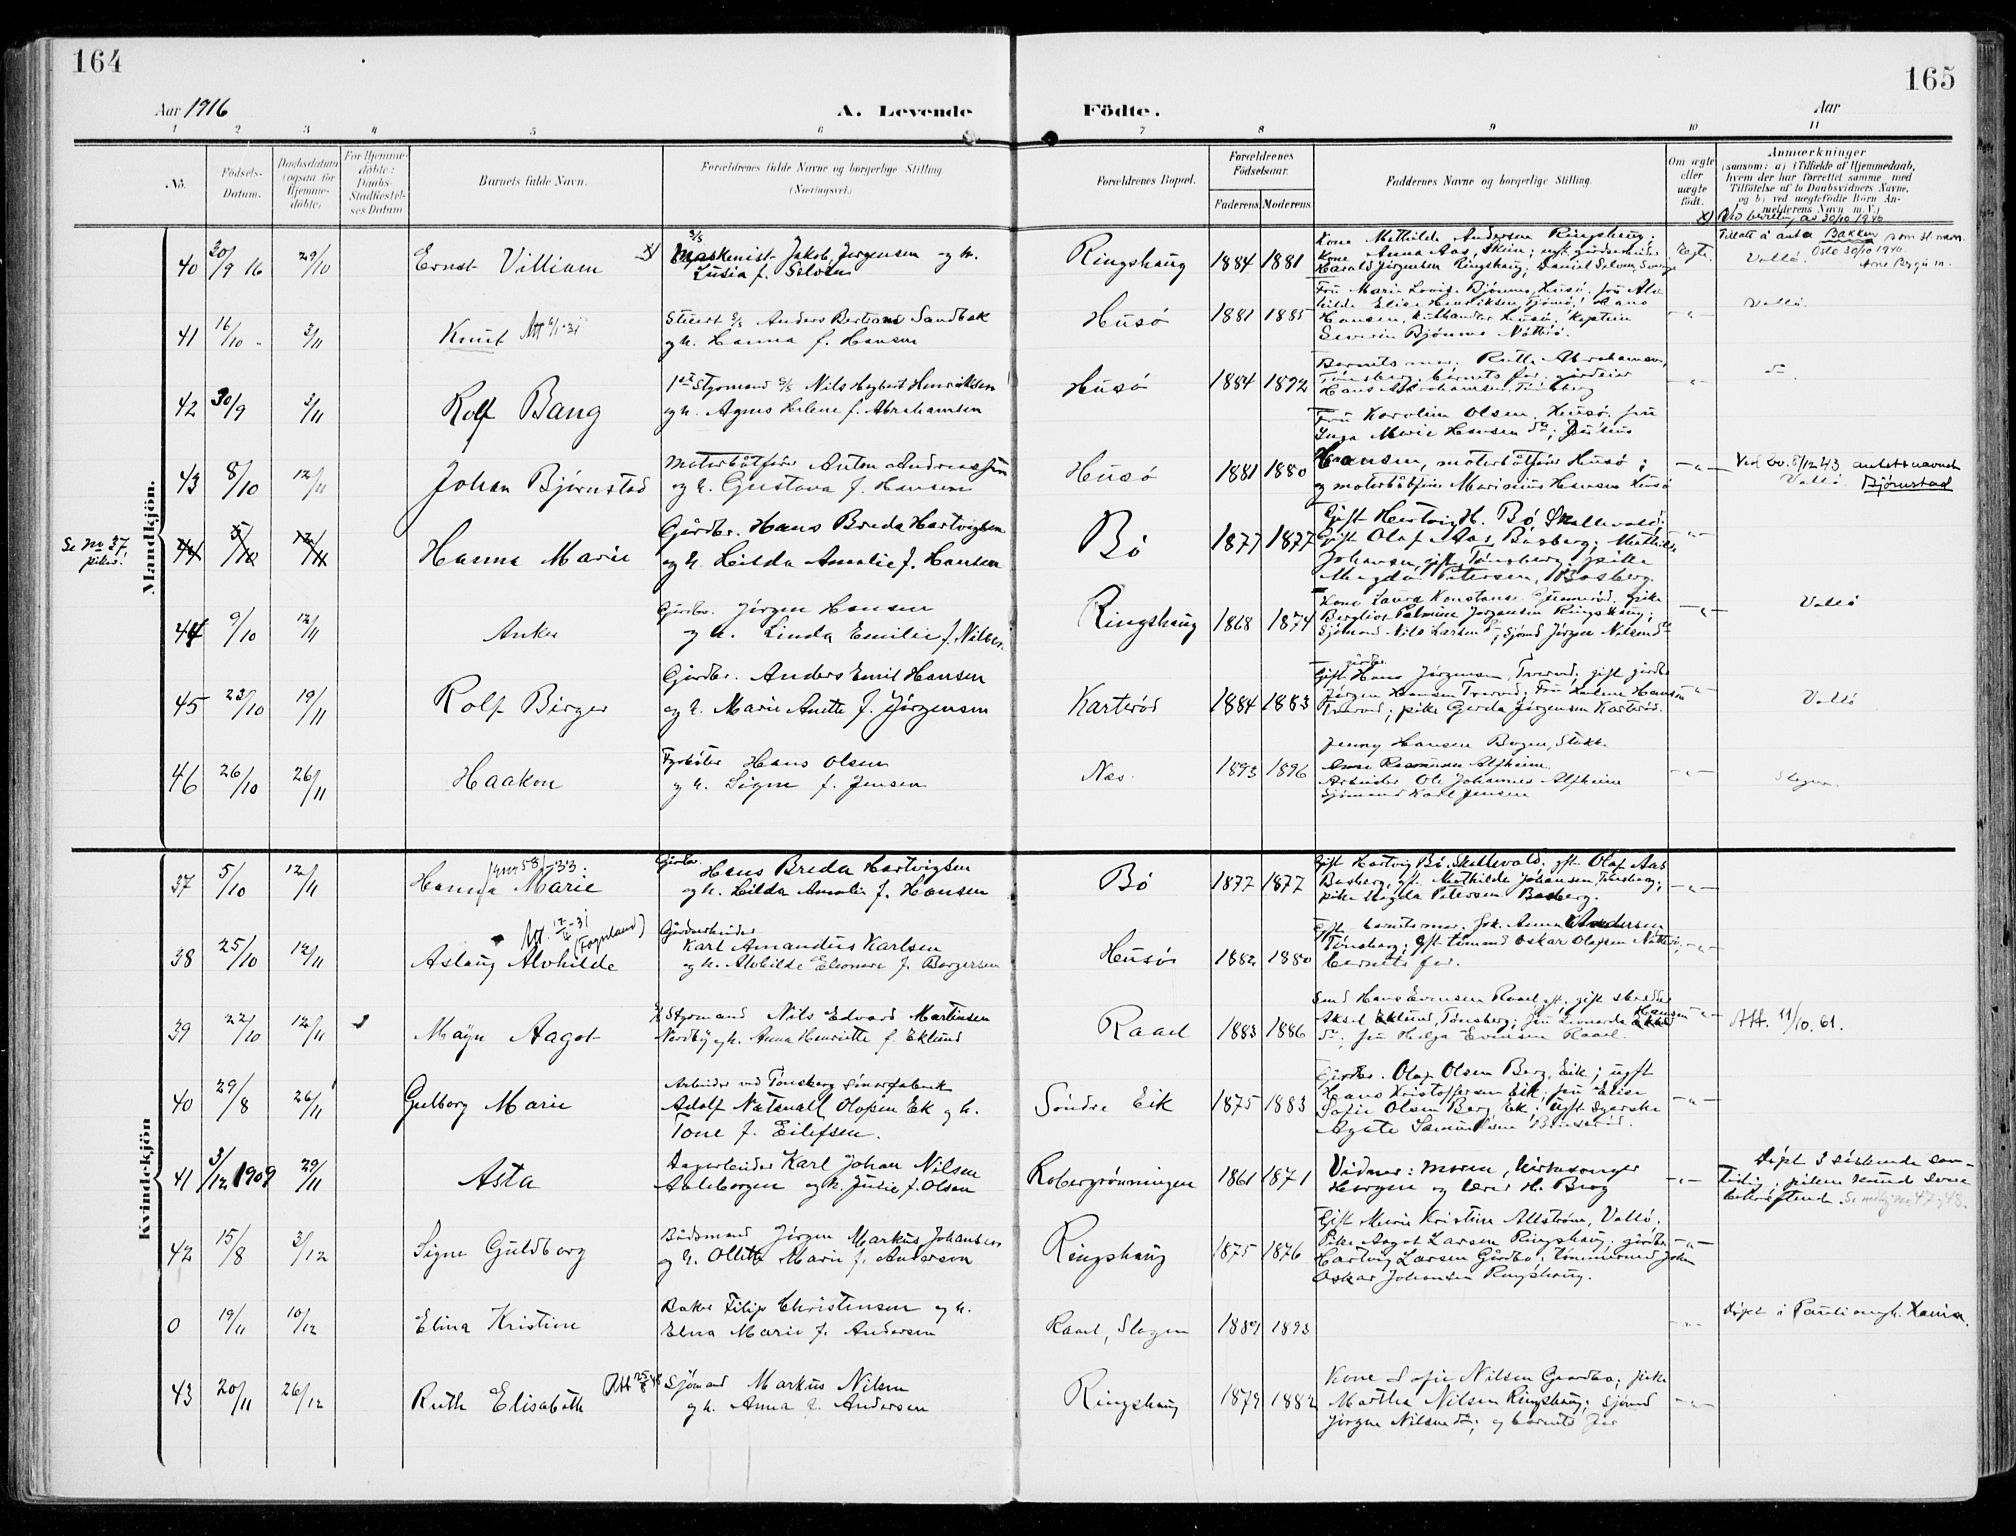 164
165
Aar 1916
A. Levende
Födte.
Aar
1 2 3 4 5 6 7 8 9 10 11
No.
Födsels-Datum.
Daabsdatum (ogsaa for Hjemme-döbte)
For Hjemme-döbte: Daabs-Stadfæstel-ses Datum
Barnets fulde Navn.
Forældrenes fulde Navne og borgerlige Stilling (Næringsvei.)
Forældrenes Bopæl.
Forældrenes Födselsaar.
Faderens. Moderens.
Faddernes Navne og borgerlige Stilling.
Om ægte eller uægte födt.
Anmærkninger
(saasom: a) i Tilfælde af Hjemmedaab, hvem der har forrettet samme med Tilföielse af to Daabsvidners Navne, og b) ved uegtefödte Börn An-melderens Navn m. V.)
Mandkjön.
40 30/9 16 29/10 Ernst Villiam x)
Maskinist Jakob Jørgensen og h.
Lusia f. Selven
Ringshaug 1884 1881
Kone Mathilde Andersen Ringshaug;
Kone Anna Aas, Skien;
Harald Jørgensen Ringshaug; Daniel Selven
Ægte.
x) Ved bevilling av 30/10 1940
Tillatt å anta Bakken som sl.navn
Oslo 30/10 1940
Vallø.
41 16/10 3/11 Knut Att 6/1-31
Stuert s/s Anders Bertran Sandbæk
og h. Hanna f. Hansen
Husö 1881 1885
Fru Marie Lovise Bjønnes, Husö; fru Alv-
hilde Elise Henriksen, Tjömö; Hans
Hansen, Husö; Kaptein
Severin Bjønnes Nötterö.
-"-
Vallö.
42 30/9 3/11 Rolf Bang
1ste Styrmand s/s Nils Herbert Henriksen
og h. Agnes Helene f. Abrahamsen
Husö 1884 1892
Barnets mor; Ruth Abrahamsen,
Tönsberg; barnets far; gårdeier
Hans Abrahamsen, Tönsberg
-"-
43 8/10 12/11 Johan Bjørnstad
Motorbåtförer Anton Andreassen
og h. Gustava f. Hansen
Husö 1881 1880
Fru Karoline Olsen, Husö; fru
Inga Marie Hansen do; Julius
Hansen, motorbåtförer Husö;
og motorbåtförer Marinius Hansen Husö
-"-
Ved bv. 8/12 43 antatt navnet
Vallö Bjørnstad
Se No 37 piker!
44 5/10 12/11 Hanna Marie
Gårdbr. Hans Breda Hartvigsen
og h. Hilda Amalie f. Hansen
Bö 1877 1877
Gift Hartvig H. Bö Skallevald;
Gift Olaf Aas, Basberg; Mathilde
Johansen, gift, Tönsberg; pike
Magda Petersen, Basberg.
-"-
44 9/10 12/11 Anker
Gårdbr. Jörgen Hansen
og h. Linda Emilie f. Nilsen
Ringshaug 1868 1874
Kone Laura Konstanse; pike
Bergliot Palmine Jörgensen Ringshaug;
Sjömand Nils Larsen do; Sjömd Jörgen Nilsen do
-"-
Vallö
45 23/10 19/11 Rolf Birger
Gårdbr. Anders Emil Hansen
og h. Marie Anette f. Jörgensen
Karteröd 1884 1883
Gift gårdbr. Hans Jørgensen, Tveröd; gift gårdbr
Jörgen Hansen Tveröd; Fru Helene Hansen
Tveröd; pike Gerda Jørgensen Karteröd.
-"-
Vallö
46 26/10 26/11 Haakon
Fyrböter Hans Olsen
og h. Signe f. Jensen
Næs. 1893 1896
Jenny Hansen Bogen, Stokke
Rasmussen Alfheim
Arbeider Ole Johannes Alfheim
Sjömand Karl Jensen
-"-
Slagen.
Kvindekjön
37 5/10 12/11 Hanna Marie
Gårdbr. Hans Breda Hartvigsen
og h. Hilda Amalie f. Hansen
Bö 1877 1877
Gift Hartvig Bö, Skallevald; gft. Olaf Aas
Basberg; gft. Mathilde Johansen, Tönsberg;
pike Magda Petersen Basberg.
-"-
38 25/10 12/11 Aslaug Alvhilde
(Fagerland)
Gårdarbeider
Karl Amandus Karlsen
og h. Alvhilde Eleonore f. Borgersen
Husö 1882 1880
Gft barnets mor; frk. Anna Andersen
Tönsberg; gift tömmermd Oskar Olafsen Nötterö;
barnets far.
-"-
39 22/10 12/11 Mayn Aagot
Styrmand Nils Edvard Martinsen
Nordby og h. Anna Henriette f. Eklund
Raael 1883 1886
Smd Hans Evensen Raael, gft; gift skrædder
Aksel Eklund, Tönsberg; fru Leonarda Hansen
do; fru Helga Evensen Raael.
-"-
Att. 11/10. 61.
40 29/8 26/11 Gulborg Marie
Arbeider ved Tönsberg smörfabrik
Adolf Natanael Olofsen Ek og h.
Tone f. Eilefsen.
Söndre Eik 1875 1883
Gårdbr. Olaf Olsen Berg, Eik; ugft
Hans Kristoffersen Eik; fru Elise
Sofie Olsen Berg Eik; ugft syerske
Agate Samuelsen
-"-
41 3/12 1909 29/11 Asta
Karl Johan Nilsen
Auleborgen og h. Julie f. Olsen
Robergrønningen 1861 1871
Vidner: moren, kirkesanger
Horgen og lærer H. Berg
-"-
Döpt 3 söskende sam-
tidig; piken
Se nr 47 og 48.
42 15/8 3/12 Signe Guldborg
Jörgen Markus Johansen
og h. Ollette Marie f. Anderson
Ringshaug 1875 1876
Gift Marie Kristine Allström, Vallö;
Pike Aagot Larsen Ringshaug; gårdbr.
Hartvig Larsen Gårdbo; tömmermd John
Oskar Johansen Ringshaug.
-"-
0 19/11 10/12 Elina Kristine
Baker Filip Christensen og h.
Elna Marie f. Andersen
Raael, Slagen 1889 1893
-"-
Döpt i
43 20/11 26/12 Ruth Elisabeth
Sjömand Markus Nilsen
og h. Anna f. Andersen
Ringshaug 1879 1882
Kone Sofie Nilsen Gaardbo; pike
Martha Nilsen Ringshaug; Sjömd
Jörgen Nilsen do; og barnets far
-"-